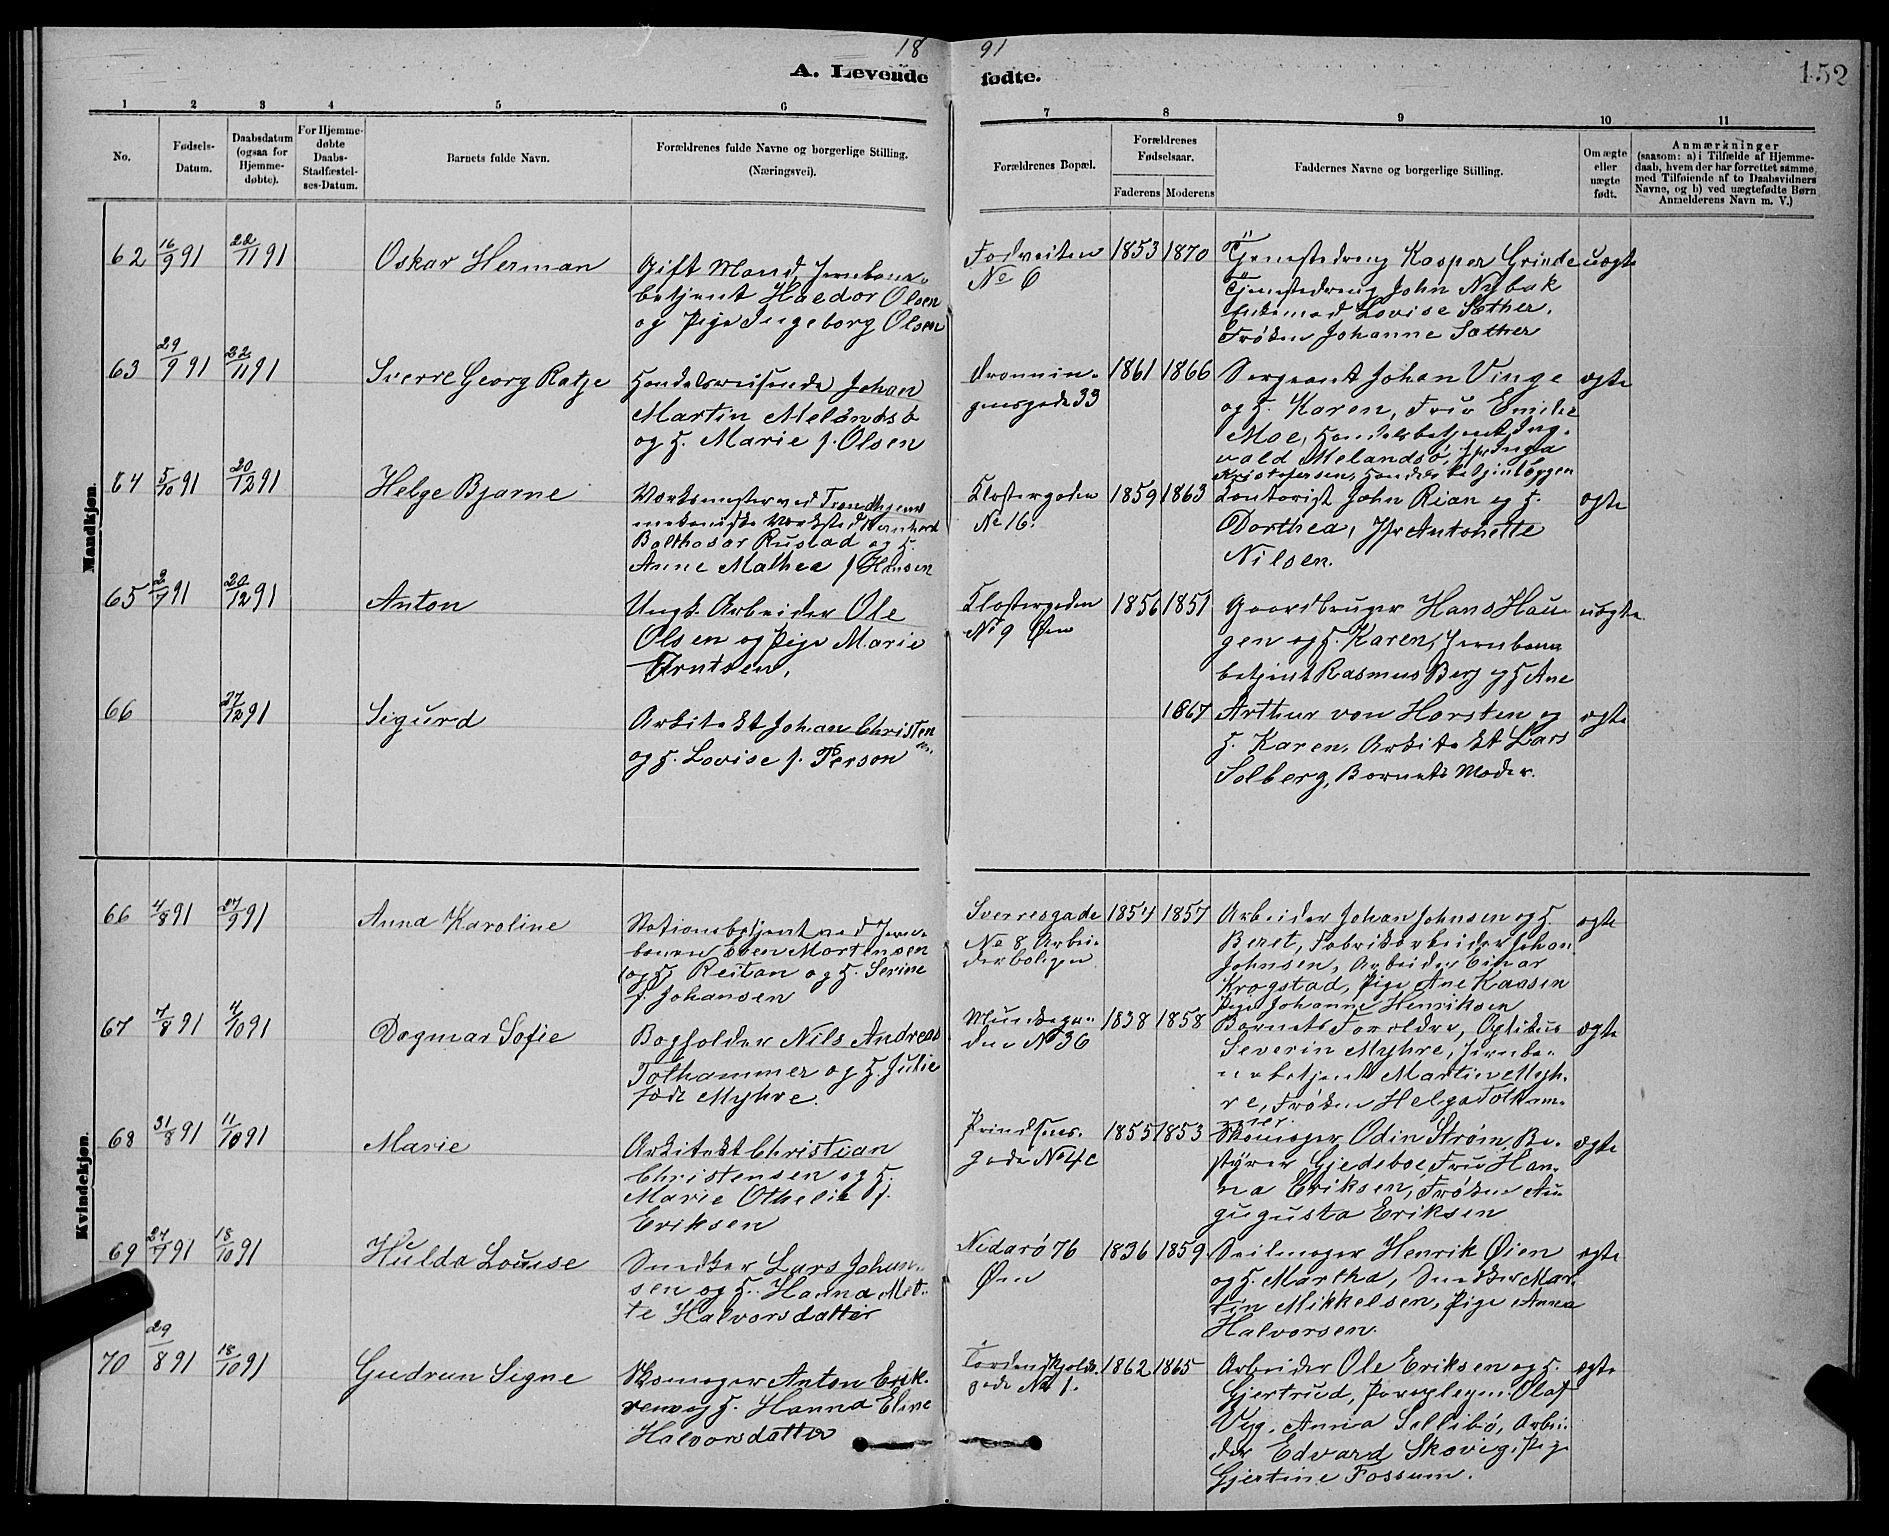 18 91
A. Levende fødte.
152
1 2 3 4 5 6 7 8 9 10 11
No.
Fødsels-
Datum.
Daabsdatum
(ogsaa for
Hjemme-
døbte).
For Hjemme-
døbte
Daabs-
Stadfæstel-
ses-Datum.
Barnets fulde Navn.
Forældrenes fulde Navne og borgerlige Stilling.
(Næringsvei).
Forældrenes Bopæl.
Forældrenes
Fødselsaar.
Faderens Moderens
Faddernes Navne og borgerlige Stilling.
Om ægte
eller
uægte
født.
Anmærkninger
(saasom: a) i Tilfælde af Hjemme-
daab, hvem der har forrettet samme,
med Tilføiende af to Daabsvidners
Navne, og b) ved uægtefødte Børn
Anmelderens Navn m. V.)
Mandkjøn.
62 16/9 91 22/11 91 Oskar Herman
Gift Mand, Jernbane-
betjent Haldor Olsen
og Pige Ingeborg Olsen
Fodveiten
No 6
1853 1870
Tjenestedreng Kasper Grinde
Tjenestedreng John Nybak
Enkemad Lovise Sæther,
Frøken Johanne Sæther
uægte
63 29/9 91 22/11 91 Sverre Georg Ratje
Handelsreisende Johan
Martin Melandsø
og H. Marie f. Olsen
Dronnin-
gensgade 33
1861 1866
Sergeant Johan Vinge
og H. Karen, Fru Emilie
Moe, Handelsbetjent Ing-
vald Melandsø, Jfr Inga
ægte
64 5/10 91 20/12 91 Helge Bjarne
Værksmester ved Trondhjems
mekaniske Værksted Bernhard
Balthasar Rustad og H.
Anne Mathea f. Hansen
Klostergaden
No 16.
1859 1863
Kontorist John Rian og H.
Dorthea, Jfr Antonette
Nilsen.
ægte
65 2/7 91 20/12 91 Anton
Ungk. Arbeider Ole
Olsen og Pige Marie
Arntsen.
Klostergaden
No 9 Øen
1856 1851
Gaardbruger Hans Hau-
gen og H. Karen, Jernbane
betjent Rasmus Berg og H Ane
uægte
66 27/12 91 Sigurd
Arkitekt Johan Christen
sen
og H. Lovise f. Person
1867
Arthur von Harsten og
H. Karen, Arkitekt Lars
Solberg, Barnets Moder.
ægte
Kvindekjøn.
66 4/8 91 27/9 91 Anna Karoline
Stationsbetjent ved Jern-
banen Sven Mortensen
(og H) Reitan og H. Serine
f. Johansen
Sverresgade
No 8, Arbei-
derboligen
1854 1857
Arbeider Johan Johnsen og H.
Beret, Fabrikarbeider Johan
Johnsen, Arbeider Einar
Krogstad, Pige Ane Kaasen
Pige Johanne Henriksen
ægte
67 7/8 91 4/10 91 Dagmar Sofie
Bogholder Nils Andreas
Tolhammer og H. Julie
født Myhre.
Munkega-
den No 36
1838 1858
Barnets Forældre, Optikus
Severin Myhre, Jernba-
nebetjent Martin Myh-
re, Frøken Helga Tolham-
mer.
ægte
68 31/8 91 11/10 91 Marie
Arkitekt Christian
Christensen og H.
Marie Othelie f.
Eriksen
Prindsens-
gade No 4c
1855 1853
Skomager Odin Strøm, Be-
styrer Gjedeboe, Fru Han-
na Eriksen, Frøken Au-
gugusta Eriksen
ægte
69 27/7 91 18/10 91 Hulda Louise
Snedker Lars Johan-
sen og H. Hanna Met-
te Halvorsdatter
Nidarø 76
Øen
1836 1859
Seilmager Henrik Øien
og H. Martha, Snedker Mar-
tin Mikkelsen, Pige Anna
Halvorsen.
ægte
70 29/8 91 18/10 91 Gudrun Signe
Skomager Anton Erik-
sen og H. Hanna Eline
Halvorsdatter
Tordenskjolds-
gade No 1.
1862 1865
Arbeider Ole Eriksen og H.
Gjertrud, Olaf
Vug, Anna Sellibø, Arbei-
der Edvard Skoveg, Pige
Gjertine Fossum.
ægte